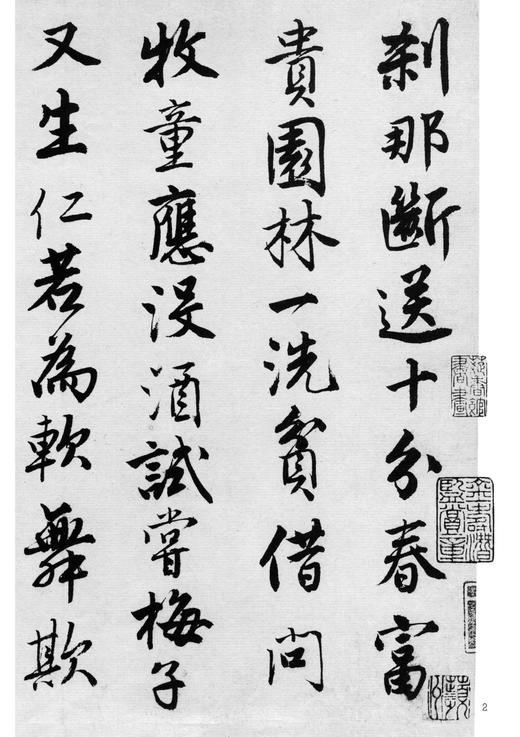 刹那斷送十分春富
貴園林一洗貧借問
牧童應沒酒試嘗梅子
又生仁若為軟舞欺
2